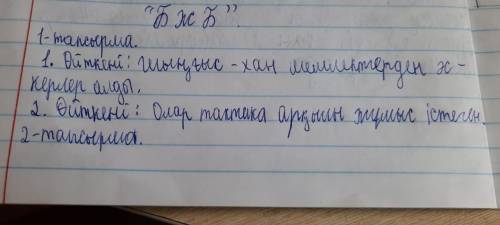 "БжБ".
1-тапсырма.
1. Өйткені: Шыңғыс-хан мемлекттерден ж-
керлер алды.
2. Өйткені: Олар тактика арқылы жұмыс істеген.
2-тапсырма.